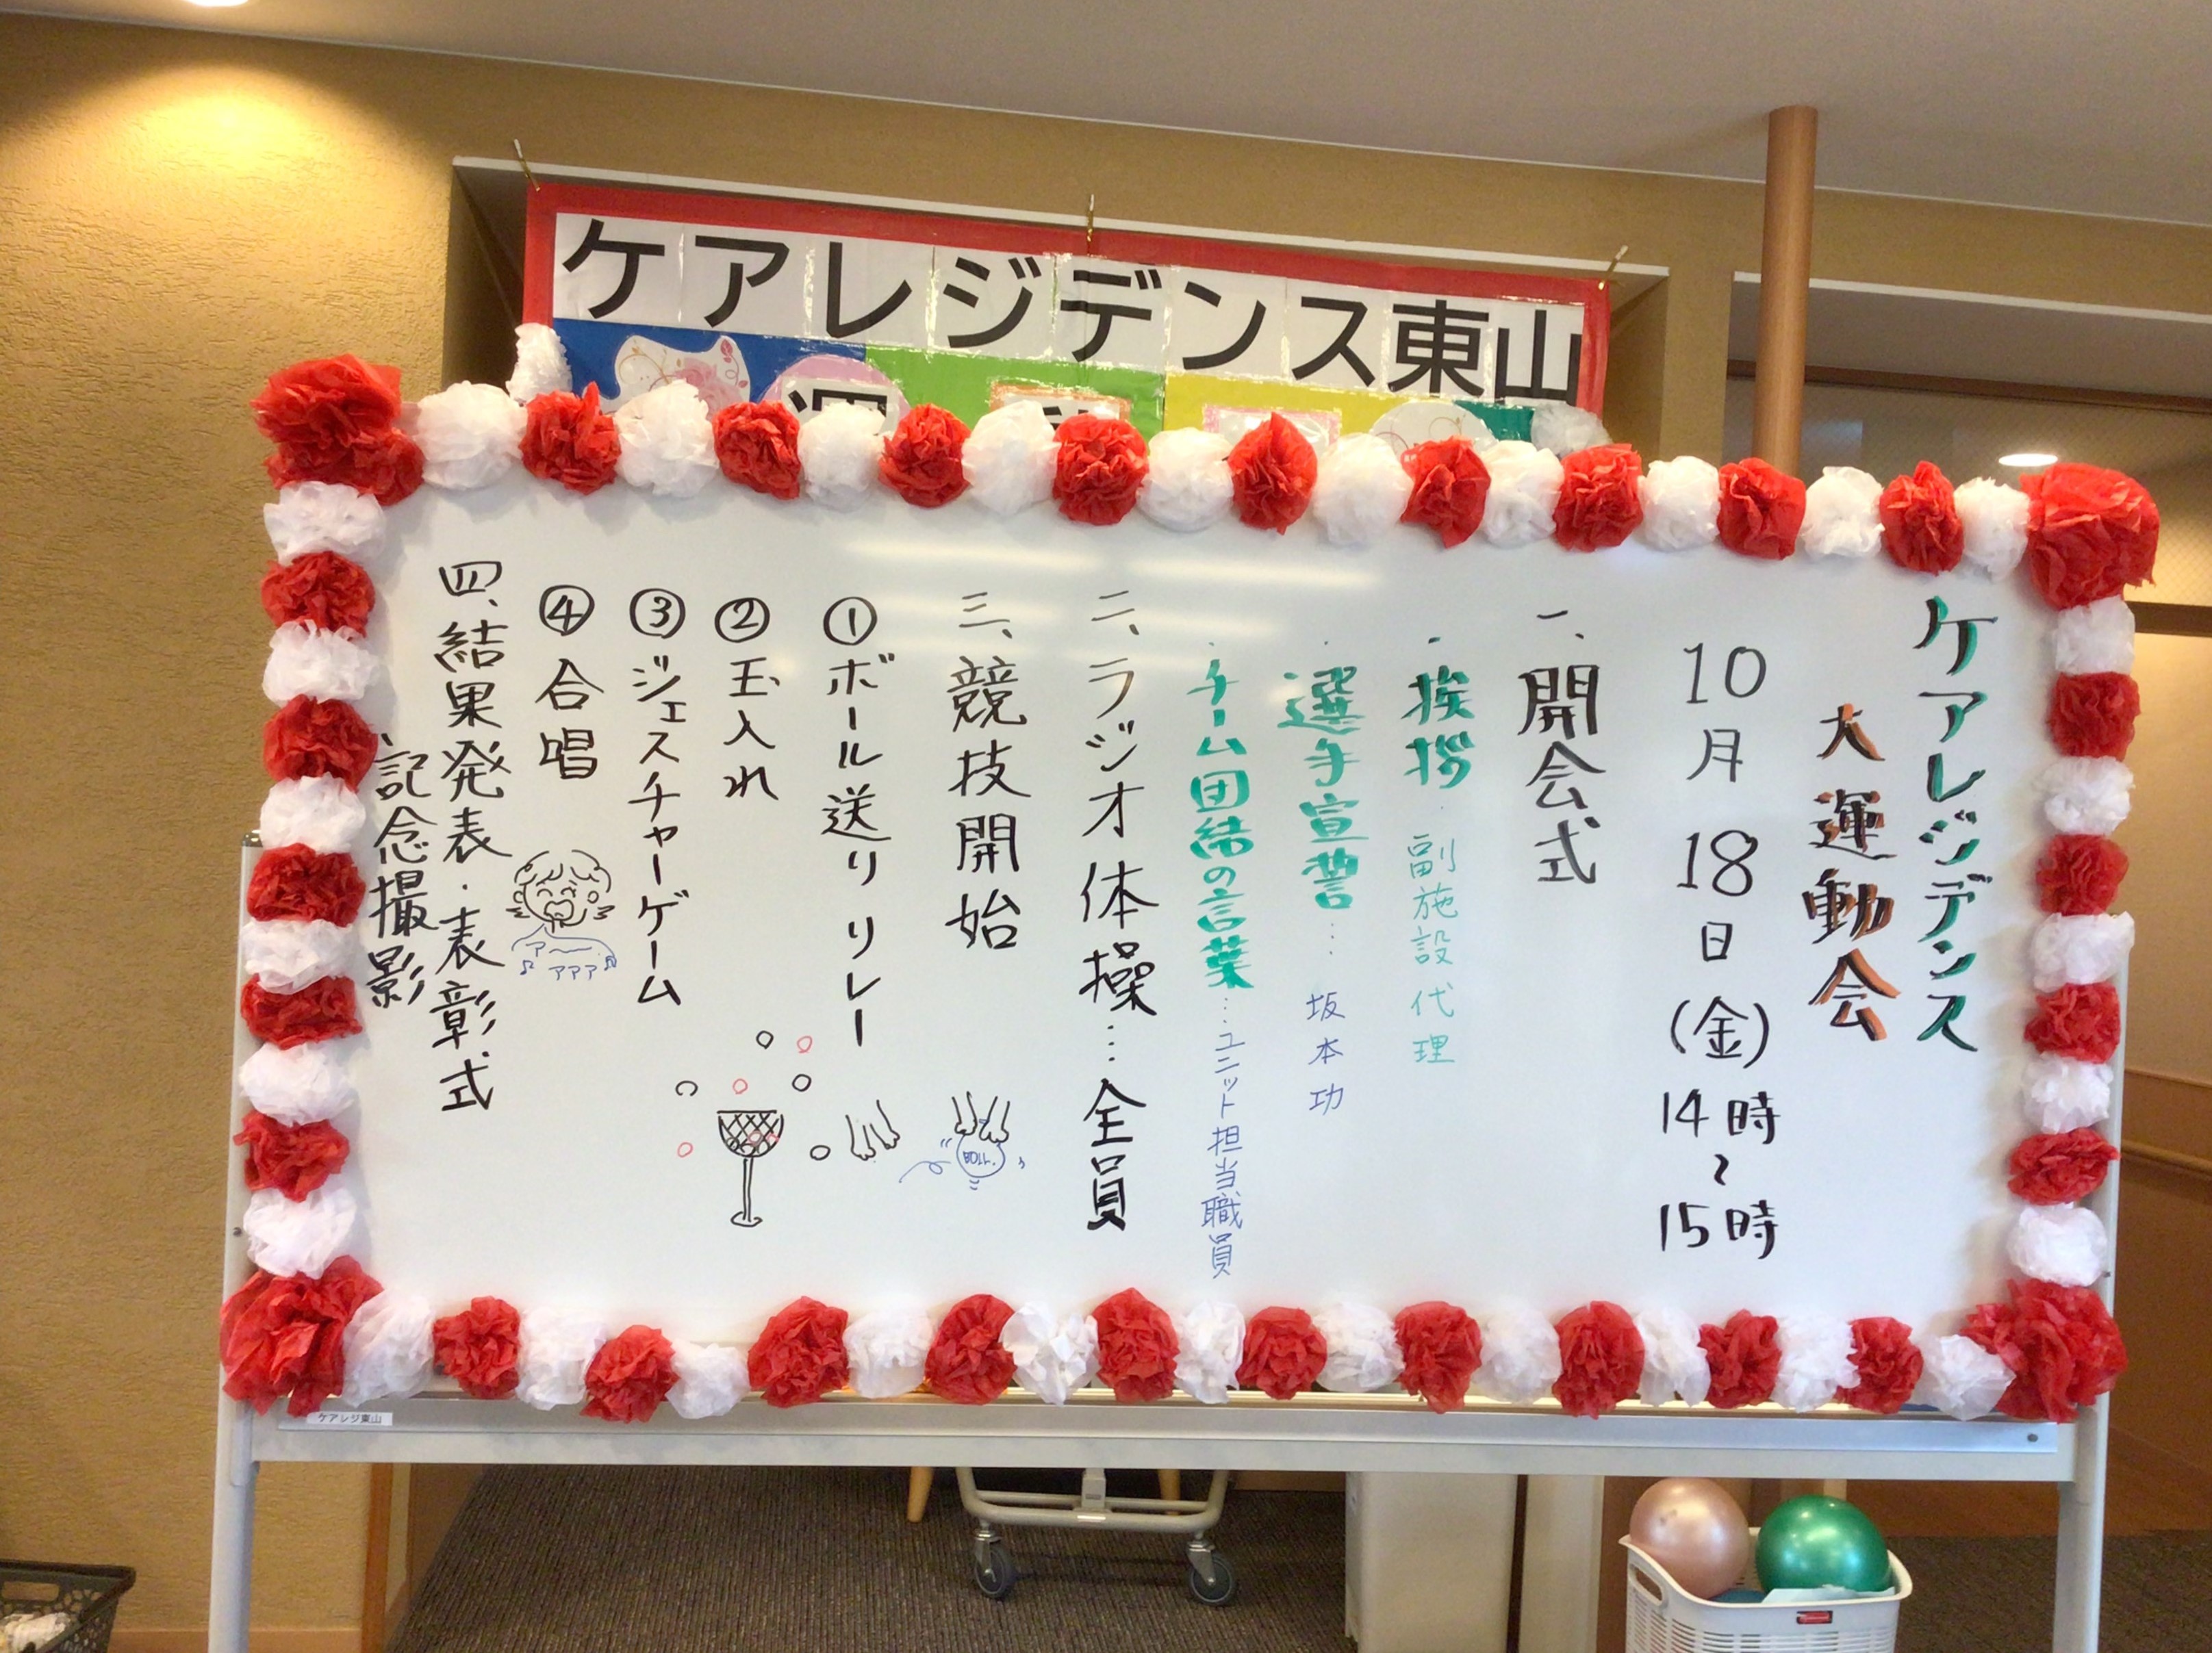 ケアレジデンス東山
ケアレジデンス
大運動会
10月18日(金)14時~15時
一、開会式
・挨拶…副施設代理
・選手宣誓…坂本功
・チーム団結の言葉…ユニット担当職員
二、ラジオ体操…全員
三、競技開始
①ボール送りリレー
②玉入れ
③ジェスチャーゲーム
④合唱
ア〜
アアア
四、結果発表・表彰式
、記念撮影
ケアレジ東山